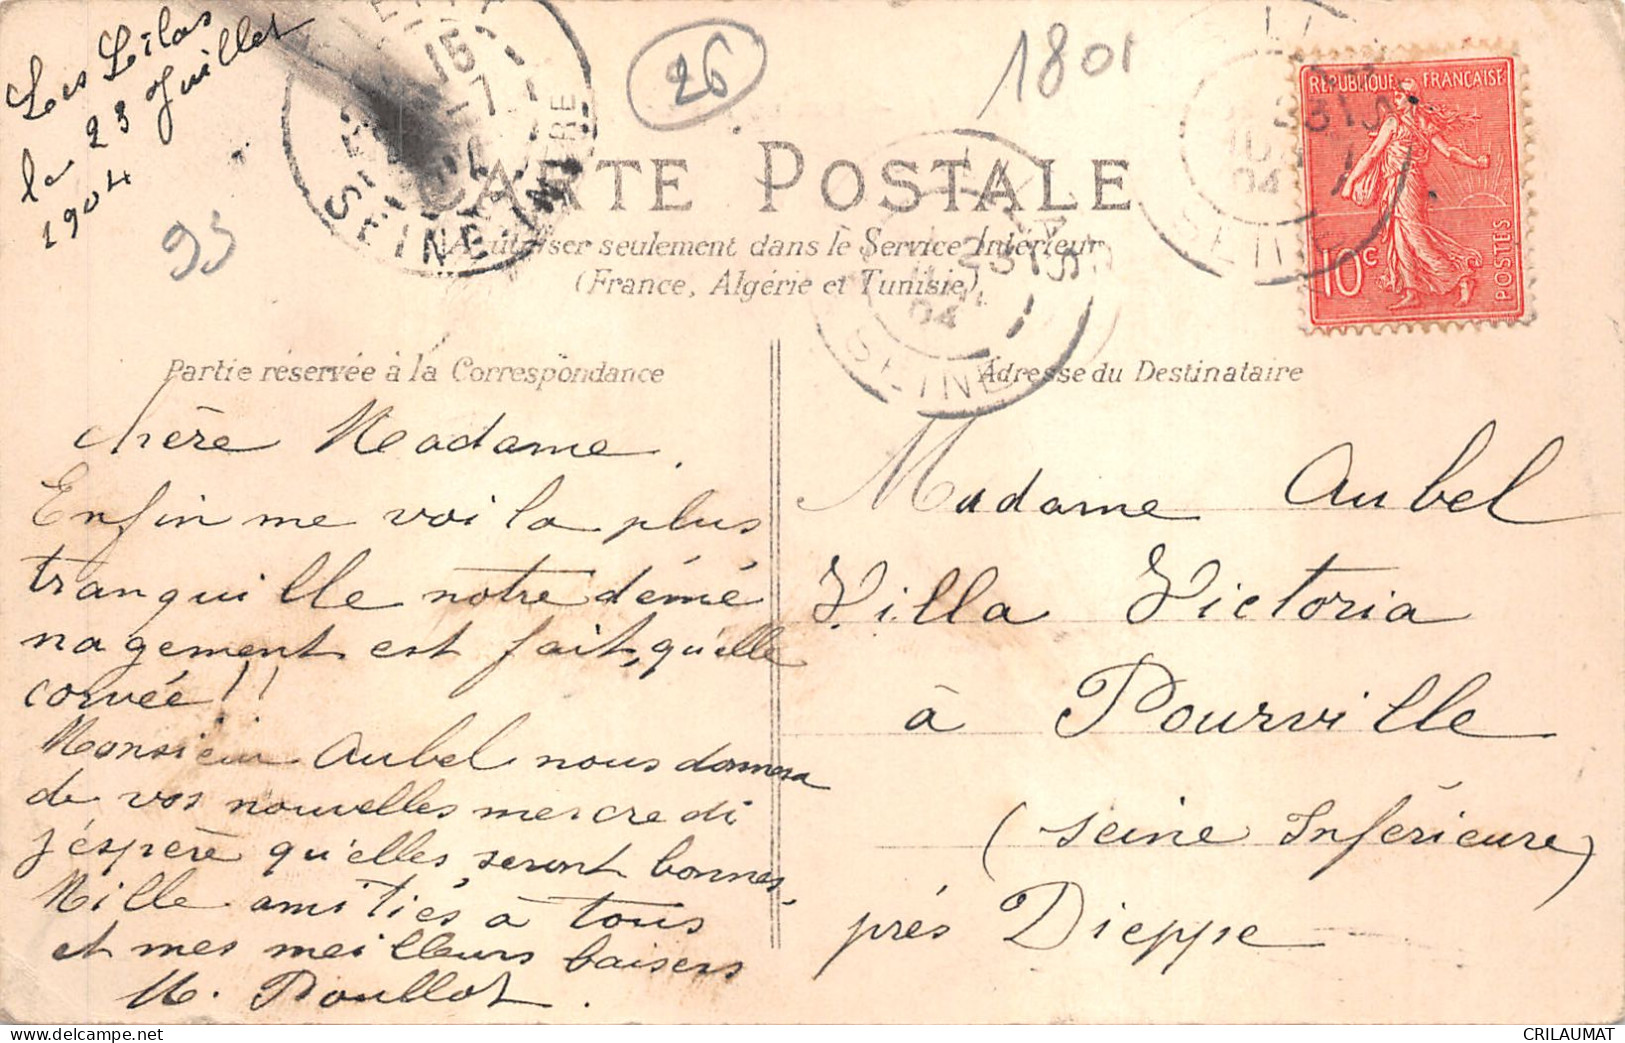 Les Lilas
le 23 Juillet
1904
93
26
1801
CARTE POSTALE
A utiliser seulement dans le Service Intérieur
(France, Algérie et Tunisie)
RÉPUBLIQUE FRANÇAISE
10c
POSTES
SEINE INFRE
SEINE
SEINE
Partie réservée à la Correspondance
chère Madame.
Enfin me voila plus
tranquille notre démé
nagement est fait, qu'elle
corvée!!
Monsieur Aubel nous donnera
de vos nouvelles mercredi
j'éspère qu'elles seront bonnes.
Mille amitiés à tous
et mes meilleurs baisers
M. Poullot.
Adresse du Destinataire
Madame Aubel
Villa Victoria
à Pourville
(Seine Inférieure)
prés Dieppe
CRILAUMAT